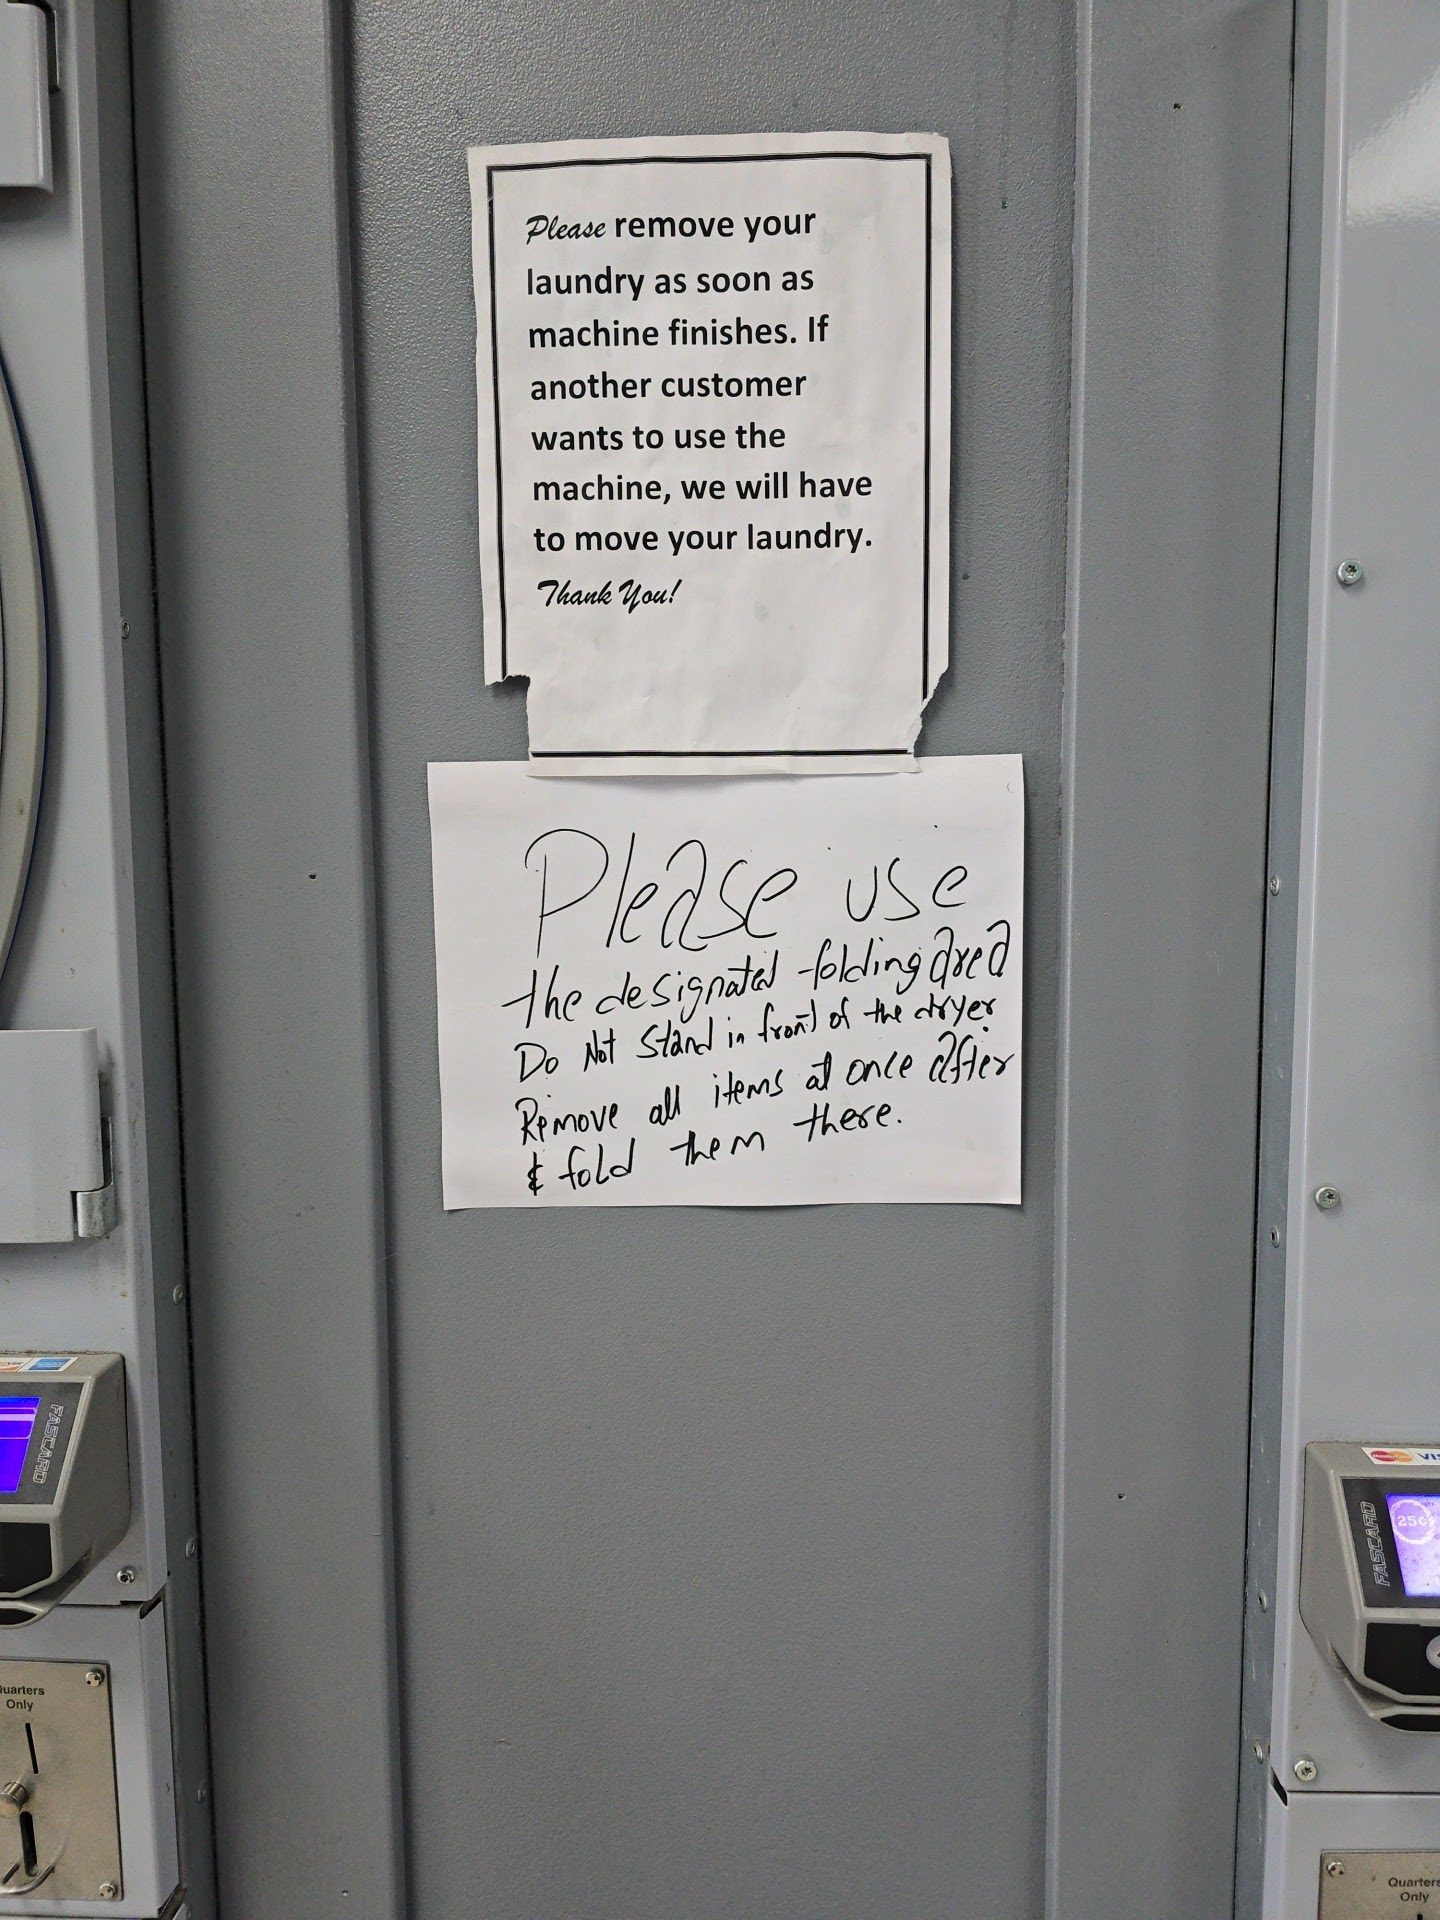 Please remove your
laundry as soon as
machine finishes. If
another customer
wants to use the
machine, we will have
to move your laundry.
Thank You!
Please use
the designated folding area
Do Not Stand in front of the dryer
Remove all items at once after
& fold them there.
FASCARD
Quarters
Only
MasterCard VIS
FASCARD
25¢
Quarters
Only